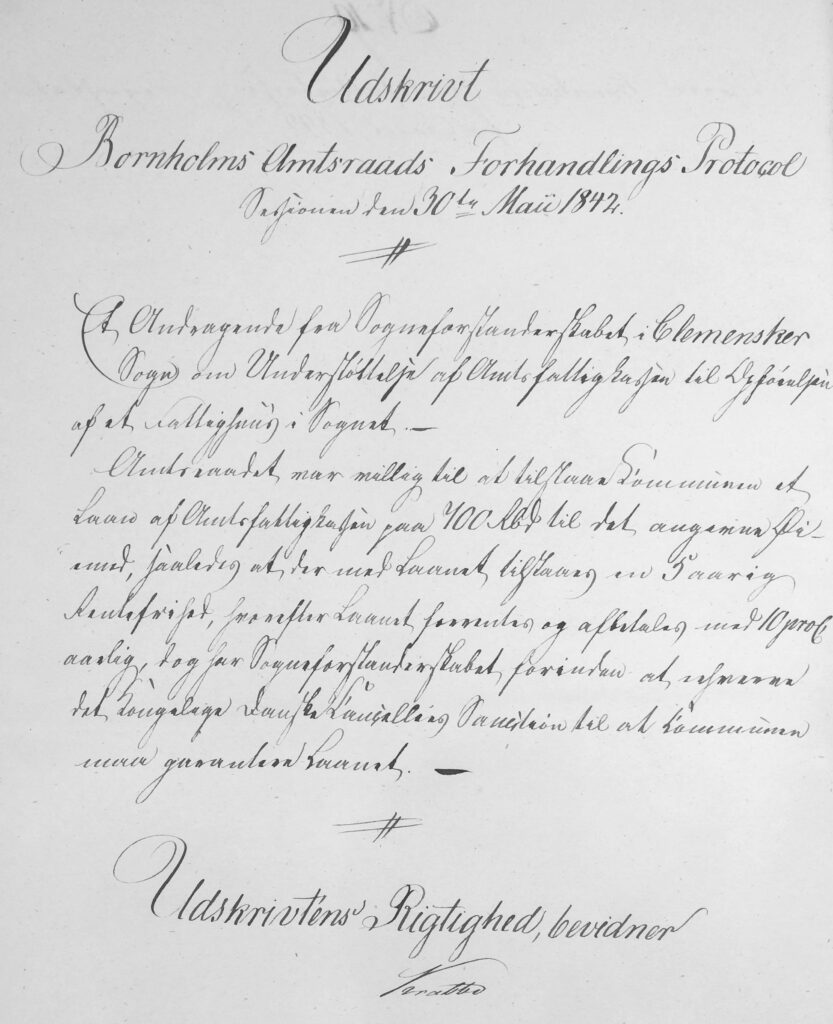 Udskrivt
Bornholms Amtsraads Forhandlings Protocol
Sessionen den 30te Maii 1842.
Et Andragende fra Sogneforstanderskabet i Clemensker
Sogn om Understöttelse af Amtsfattigkassen til Opförelsen
af et Fattighuus i Sognet. —
Amtsraadet var villig til at tilstaae Communen et
Laan af Amtsfattigkassen paa 700 Rbd til det angivne Öi-
emed, saaledes at der med Laanet tilstaaes en 5 aarig
Rentefrihed, hvorefter Laanet forrentes og afbetales med 10 proC
aarlig, dog har Sogneforstanderskabet forinden at erhverve
det Kongelige Danske Cancellies Sanction til at Communen
maa garantere Laanet. —
Udskrivtens Rigtighed, bevidner
Krabbe